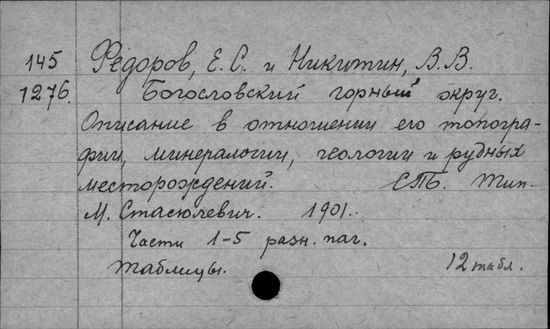 145 Федоров, Е.С. и Никитин, В.В.
1276. Богословский горный округ.
Описание в отношении его топогра-
фии, минералогии, геологии и рудных
месторождений. СПБ. Тип.
М. Стасюлевич. 1901.
Части 1-5 разн. паг.
таблицы. 12 табл.